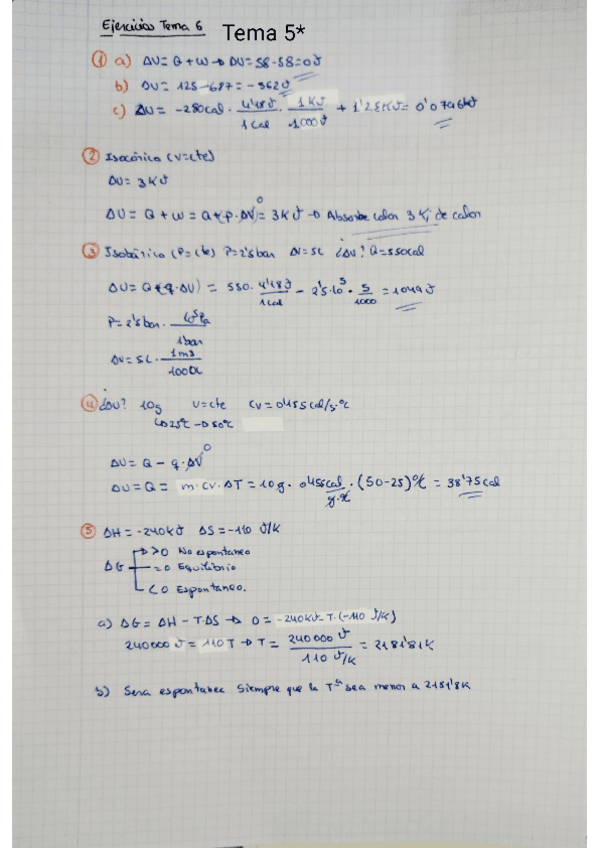 Ejercicios Tema 6 Tema 5*
① a) ΔU = Q + W → ΔU = 58 - 58 = 0 J
b) ΔU = 125 - 687 = -562 J
c) ΔU = -280 cal · 4'18 J / 1 cal · 1 KJ / 1000 J + 1'25 KJ = 0'0796 KJ
② Isocórico (V=cte)
ΔU = 3 KJ
ΔU = Q + W = Q + (P·ΔV)⁰ = 3 KJ → Absorbe calor 3 Kj de calor
③ Isobárico (P=cte) P=2'5 bar ΔV=5L ¿ΔU? Q=550cal
ΔU = Q (P·ΔV) = 550 · 4'18 J / 1 cal - 2'5·10⁵ · 5 / 1000 = 1049 J
P = 2'5 bar · 10⁵ Pa / 1 bar
ΔV = 5L · 1 m3 / 1000L
④ ¿ΔU? 10g V=cte CV = 0'155 cal/g·ºC
↳ 25ºC → 50ºC
ΔU = Q - P·ΔV⁰
ΔU = Q = m·CV·ΔT = 10g · 0'155 cal / g·ºC · (50-25)ºC = 38'75 cal
⑤ ΔH = -240 KJ ΔS = -110 J/K
>0 No espontaneo
ΔG = 0 Equilibrio
<0 Espontaneo.
a) ΔG = ΔH - TΔS → 0 = -240KJ - T·(-110 J/K)
240000 J = 110 T → T = 240000 J / 110 J/K = 2181'81K
b) Sera espontanea siempre que la Tª sea menor a 2181'8K